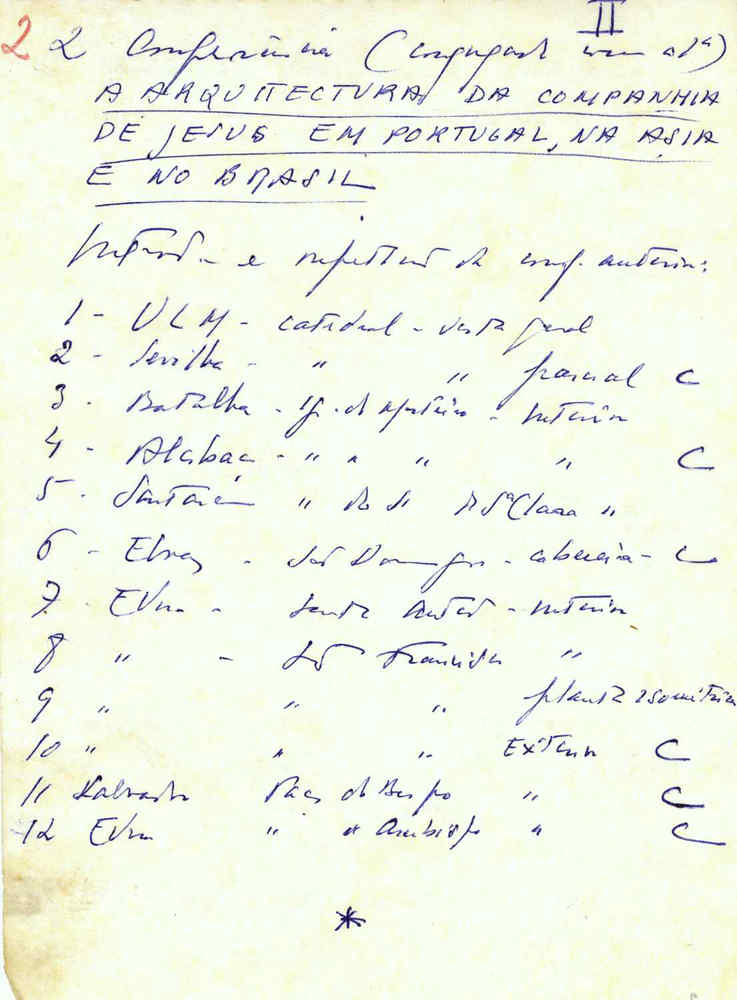 II
2 2 Conferência (conjugada com a 1ª)
A ARQUITECTURA DA COMPANHIA
DE JESUS EM PORTUGAL, NA ASIA
E NO BRASIL
Introd. e da conf. anterior:
1 - ULM - catedral - vista geral
2 - Sevilha - " " parcial C
3 - Batalha - Ig. do mosteiro - Interior
4 - Alcobaça - " " " " C
5 - Santarém " de Stª Clara "
6 - Elvas - São Domingos - cabeceira - C
7 - Evora - Santo Antão - interior
8 " - São Francisco "
9 " " " planta isométrica
10 " " " Exterior C
11 Salvador Paço do Bispo " C
12 Evora " " Arcebispo " C
*